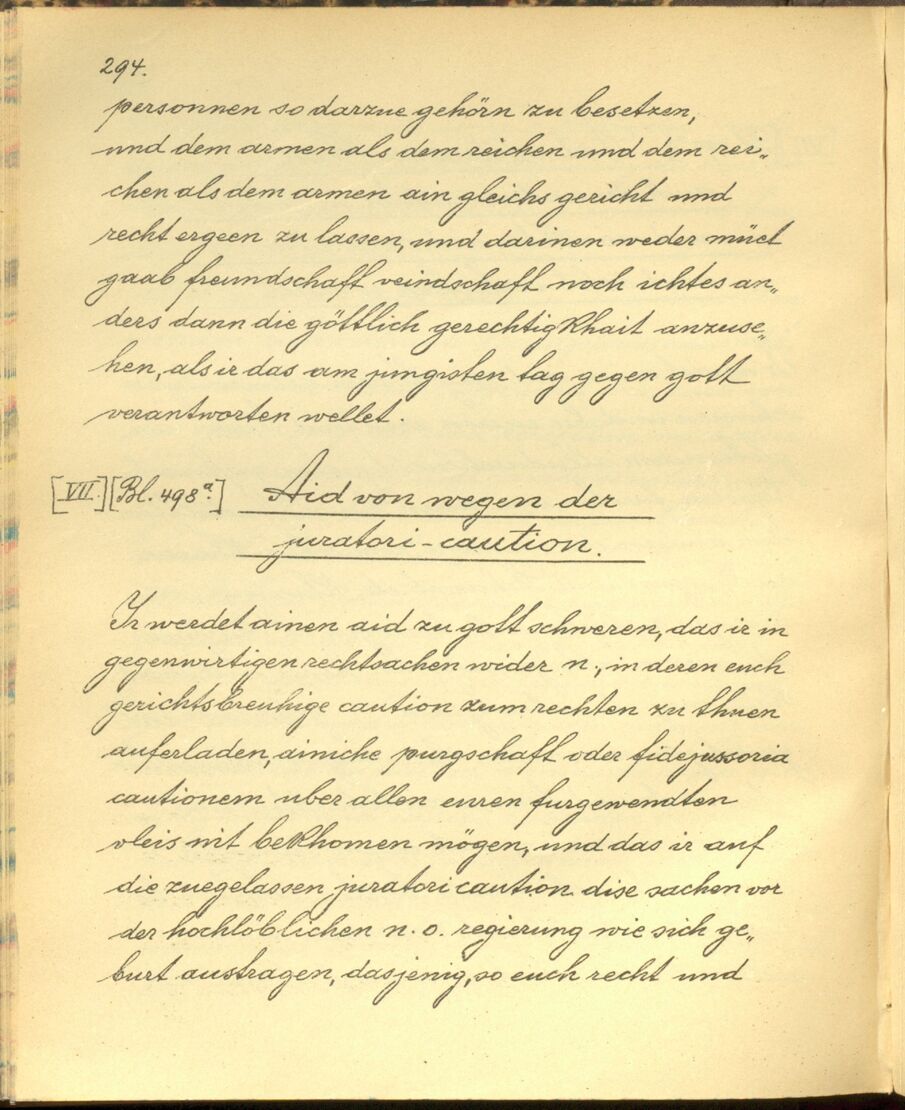 294.
personnen so darzue gehörn zu besetzen,
und dem armen als dem reichen und dem rei„
chen als dem armen ain gleichs gericht und
recht ergeen zu lassen, und darinen weder müet
gaab freundschaft veindschaft noch ichtes an„
ders dann die göttlich gerechtigkhait anzuse„
hen, als ir das am jungisten tag gegen gott
verantworten wellet.
[VII.] [Bl. 498a.] Aid von wegen der
juratori-caution.
Ir werdet ainen aid zu gott schweren, das ir in
gegenwirtigen rechtsachen wider n., in deren euch
gerichtsbreuhige caution zum rechten zu thuen
auferladen, ainiche purgschaft oder fidejussoria
cautionem uber allen euren furgewendten
vleis nit bekhomen mögen, und das ir auf
die zuegelassen juratori caution dise sachen vor
der hochlöblichen n. o. regierung wie sich ge„
burt austragen, dasjenig, so euch recht und